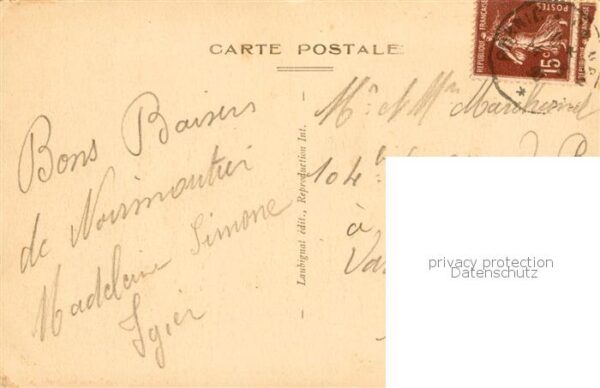 CARTE POSTALE
REPUBLIQUE FRANÇAISE
POSTES
15c
Bons Baisers
de Noirmoutier
Madeleine Simone
Laubignat édit., Reproduction Int.
Mr et Mme
104 b
à
Va
privacy protection
Datenschutz